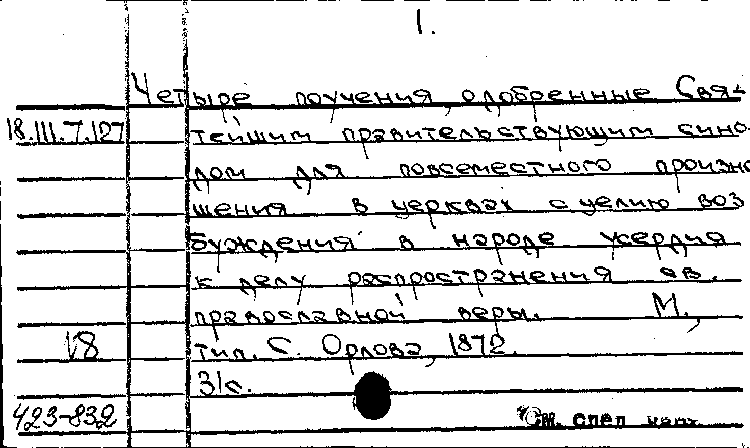 1.
Четыре поучения, одобренные Свя-
18.III.7.127 тейшим правительствующим сино-
дом для повсеместного произне
шения в церквах с целию воз
буждения в народе усердия
к делу распространения св.
православной веры. М.,
V8 тип. С. Орлова, 1872.
31с.
423-832 См. спец